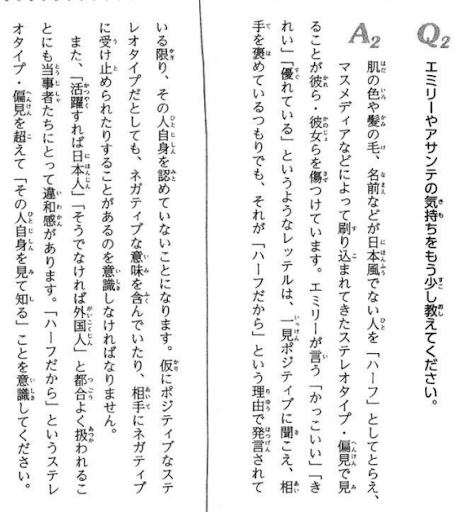 Q2 エミリーやアサンテの気持ちをもう少し教えてください。
A2 肌の色や髪の毛、名前などが日本風でない人を「ハーフ」としてとらえ、
マスメディアなどによって刷り込まれてきたステレオタイプ・偏見で見
ることが彼ら・彼女らを傷つけています。エミリーが言う「かっこいい」「き
れい」「優れている」というようなレッテルは、一見ポジティブに聞こえ、相
手を褒めているつもりでも、それが「ハーフだから」という理由で発言されて
いる限り、その人自身を認めていないことになります。仮にポジティブなステ
レオタイプだとしても、ネガティブな意味を含んでいたり、相手にネガティブ
に受け止められたりすることがあるのを意識しなければなりません。
また、「活躍すれば日本人」「そうでなければ外国人」と都合よく扱われるこ
とにも当事者たちにとって違和感があります。「ハーフだから」というステレ
オタイプ・偏見を超えて「その人自身を見て知る」ことを意識してください。